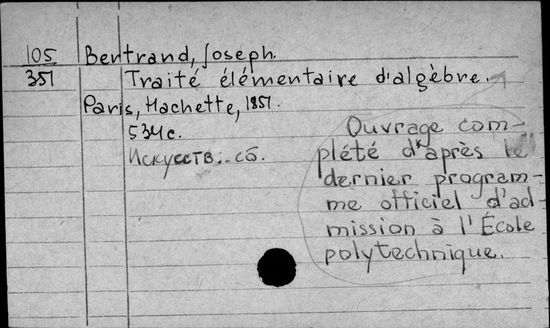 105 Bertrand, Joseph.
351 Traité élémentaire d'algèbre.
Paris, Hachette, 1851.
534 с.
Искусств. сб.
Ouvrage com-
plété d'après le
dernier program-
me officiel d'ad-
mission à l'École
polytechnique.